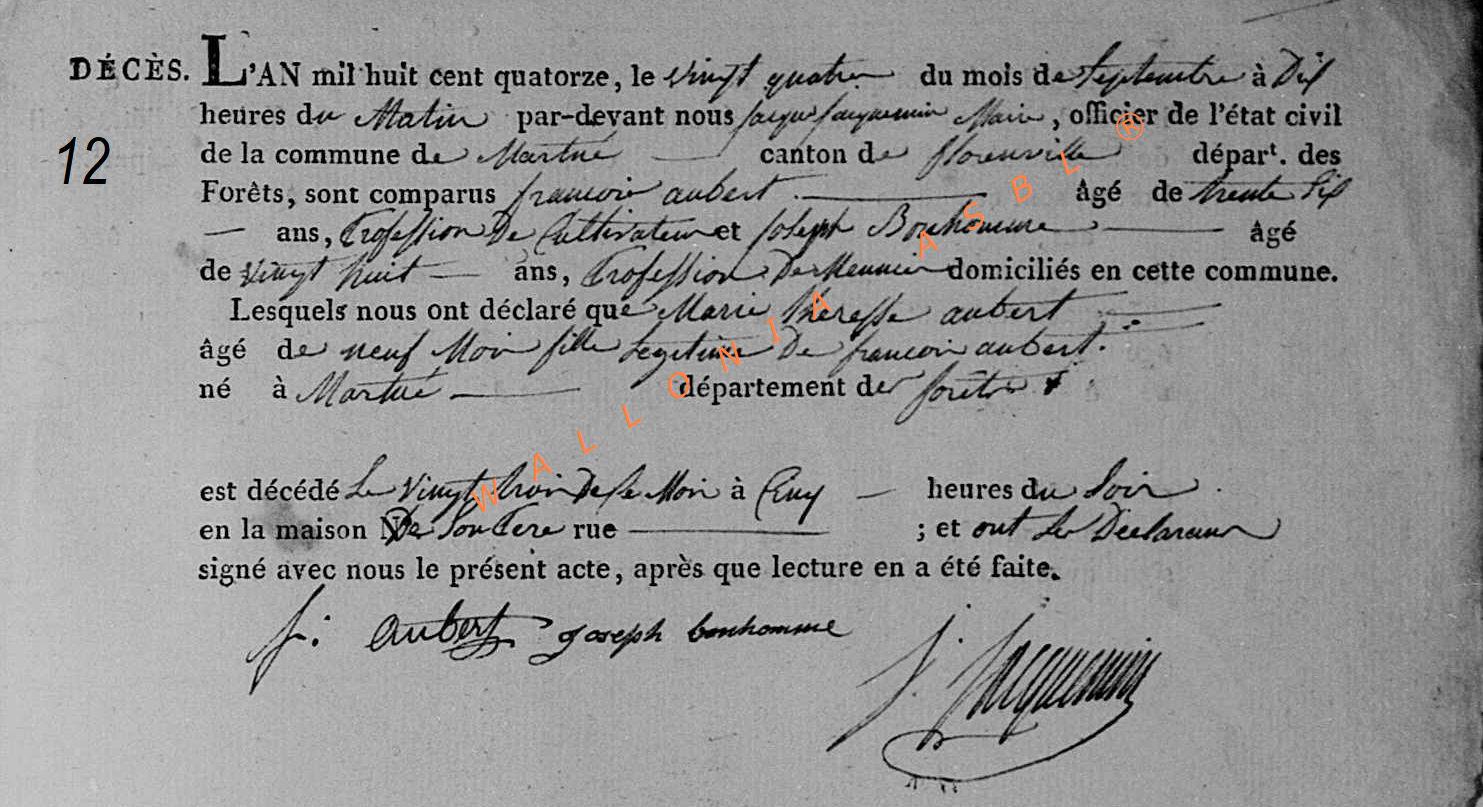 DÉCÈS. L'AN mil huit cent quatorze, le vingt quatre du mois de Septembre à Dix
heures du Matin par-devant nous jacque jacquemin Maire, officier de l'état civil
12
de la commune de Martué canton de florenville départ. des
Forêts, sont comparus francois aubert âgé de trente Six
ans, Profession De Cultivateur et joseph Bonhomme âgé
de vingt huit ans, Profession De Meunier domiciliés en cette commune.
Lesquels nous ont déclaré que Marie theresse aubert
âgé de neuf Mois fille Legitime De francois aubert.
né à Martué département des forêts
est décédé Le vingt trois De ce Mois à heures du Soir
en la maison De Son Pere rue ; et ont les Declarans
signé avec nous le présent acte, après que lecture en a été faite.
f: aubert joseph bonhomme
j. jacquemin
WALLONIA ASBL ®